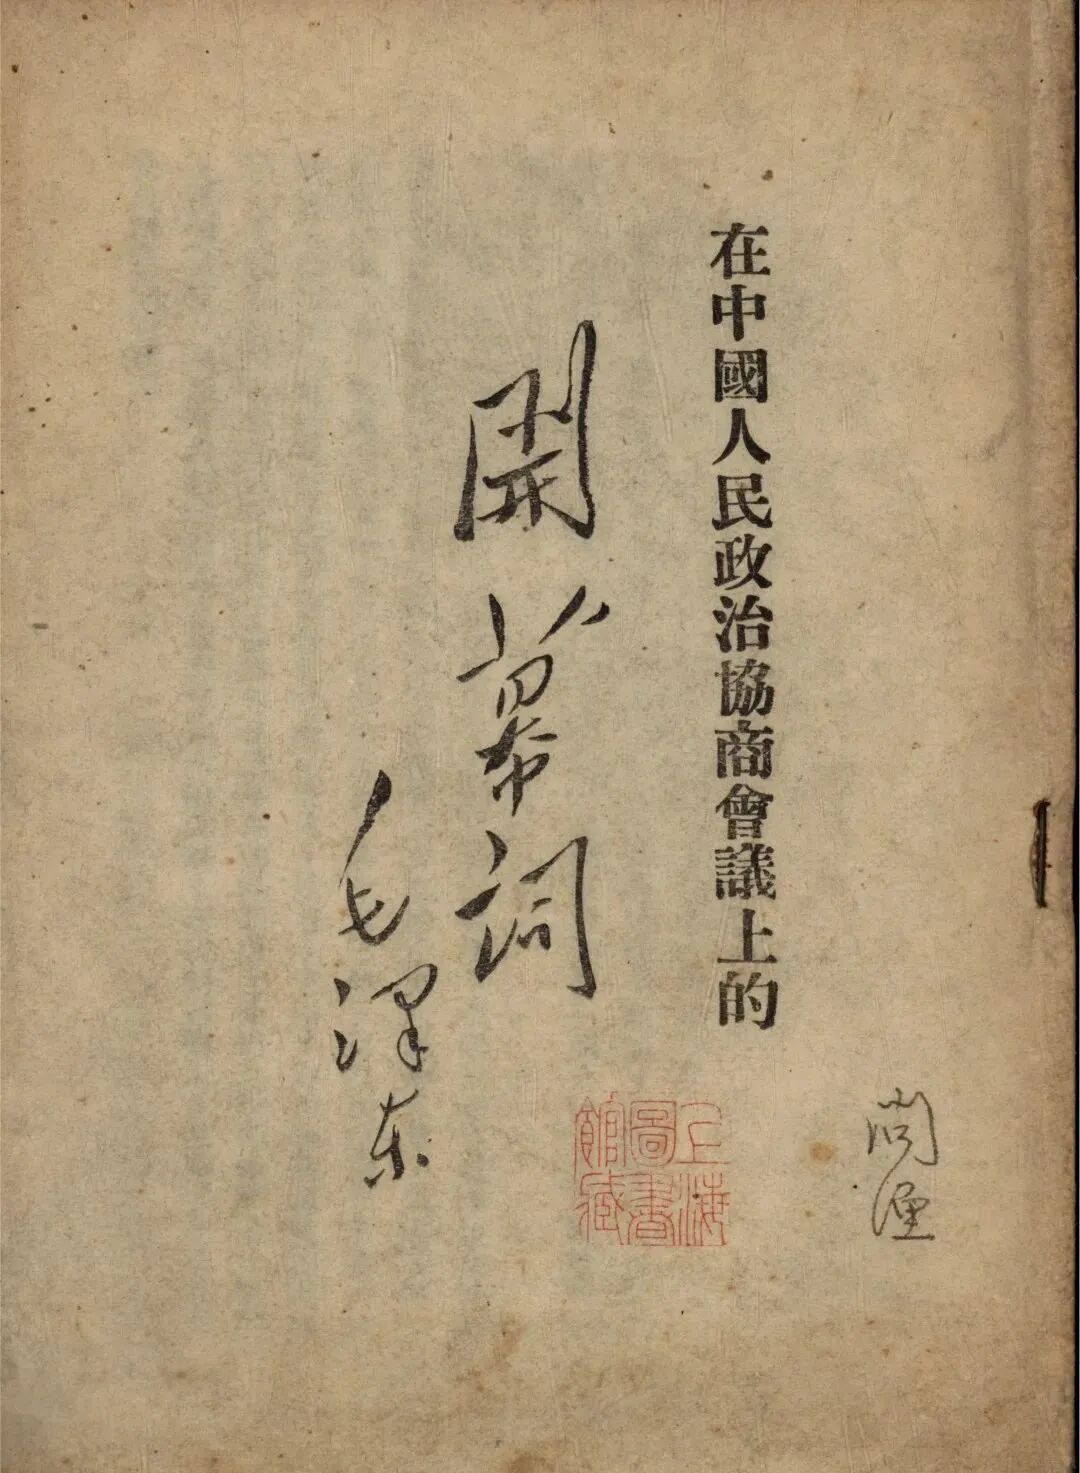 在中國人民政治協商會議上的
開幕詞
毛澤东
上海
圖書
館藏